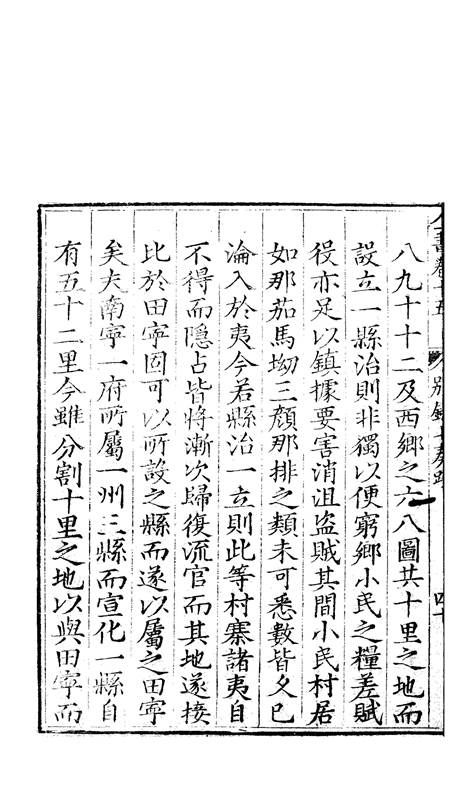 全書卷十五　別錄七奏疏　四十
八九十十二及西鄉之六八圖其十里之地而
設立一縣治則非獨以便窮鄉小民之糧差賦
役亦足以鎮據要害消沮盜賊其間小民村居
如那茄馬坳三顏那排之類未可悉數皆久已
淪入於夷今若縣治一立則此等村寨諸夷自
不得而隱占皆將漸次歸復流官而其地遂接
比於田寧固可以所設之縣而遂以屬之田寧
矣夫南寧一府所屬一州三縣而宣化一縣自
有五十二里今雖分割十里之地以與田寧而